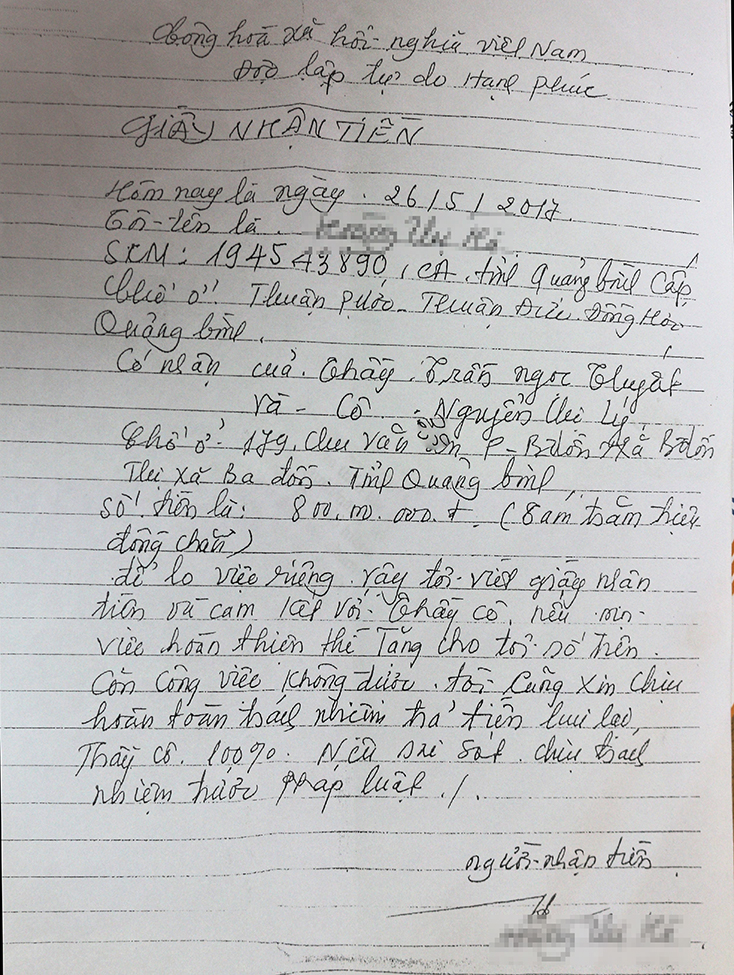 Cộng hoà xã hội nghĩa việt Nam
Độc lập tự do Hạnh phúc
GIẤY NHẬN TIỀN
Hôm nay là ngày. 26/5/2017.
Tôi-tên là.
SCM: 194543890, CA. tỉnh Quảng bình Cấp
Chỗ ở: Thuận phước- Thuận Đức. Đồng Hới
Quảng bình.
Có nhận của. Thầy. Trần ngọc Thuyết
Và - Cô. Nguyễn thi Lý.
Chỗ ở: 179. Chu văn P-
Thị xã Ba đồn. Tỉnh Quảng bình,
số tiền là: 800.000.000.đ. (Tám trăm triệu
đồng chẵn)
để lo việc riêng. vậy tôi-viết giấy nhận
tiền và cam kết với. Thầy cô, nếu
việc hoàn thiện thì Tặng cho tôi số tiền.
Còn công việc không được. tôi Cũng xin chịu
hoàn toàn trách nhiệm trả tiền lại,
Thầy cô. 100%. Nếu sai sót. chịu trách
nhiệm trước pháp luật./.
người-nhận tiền